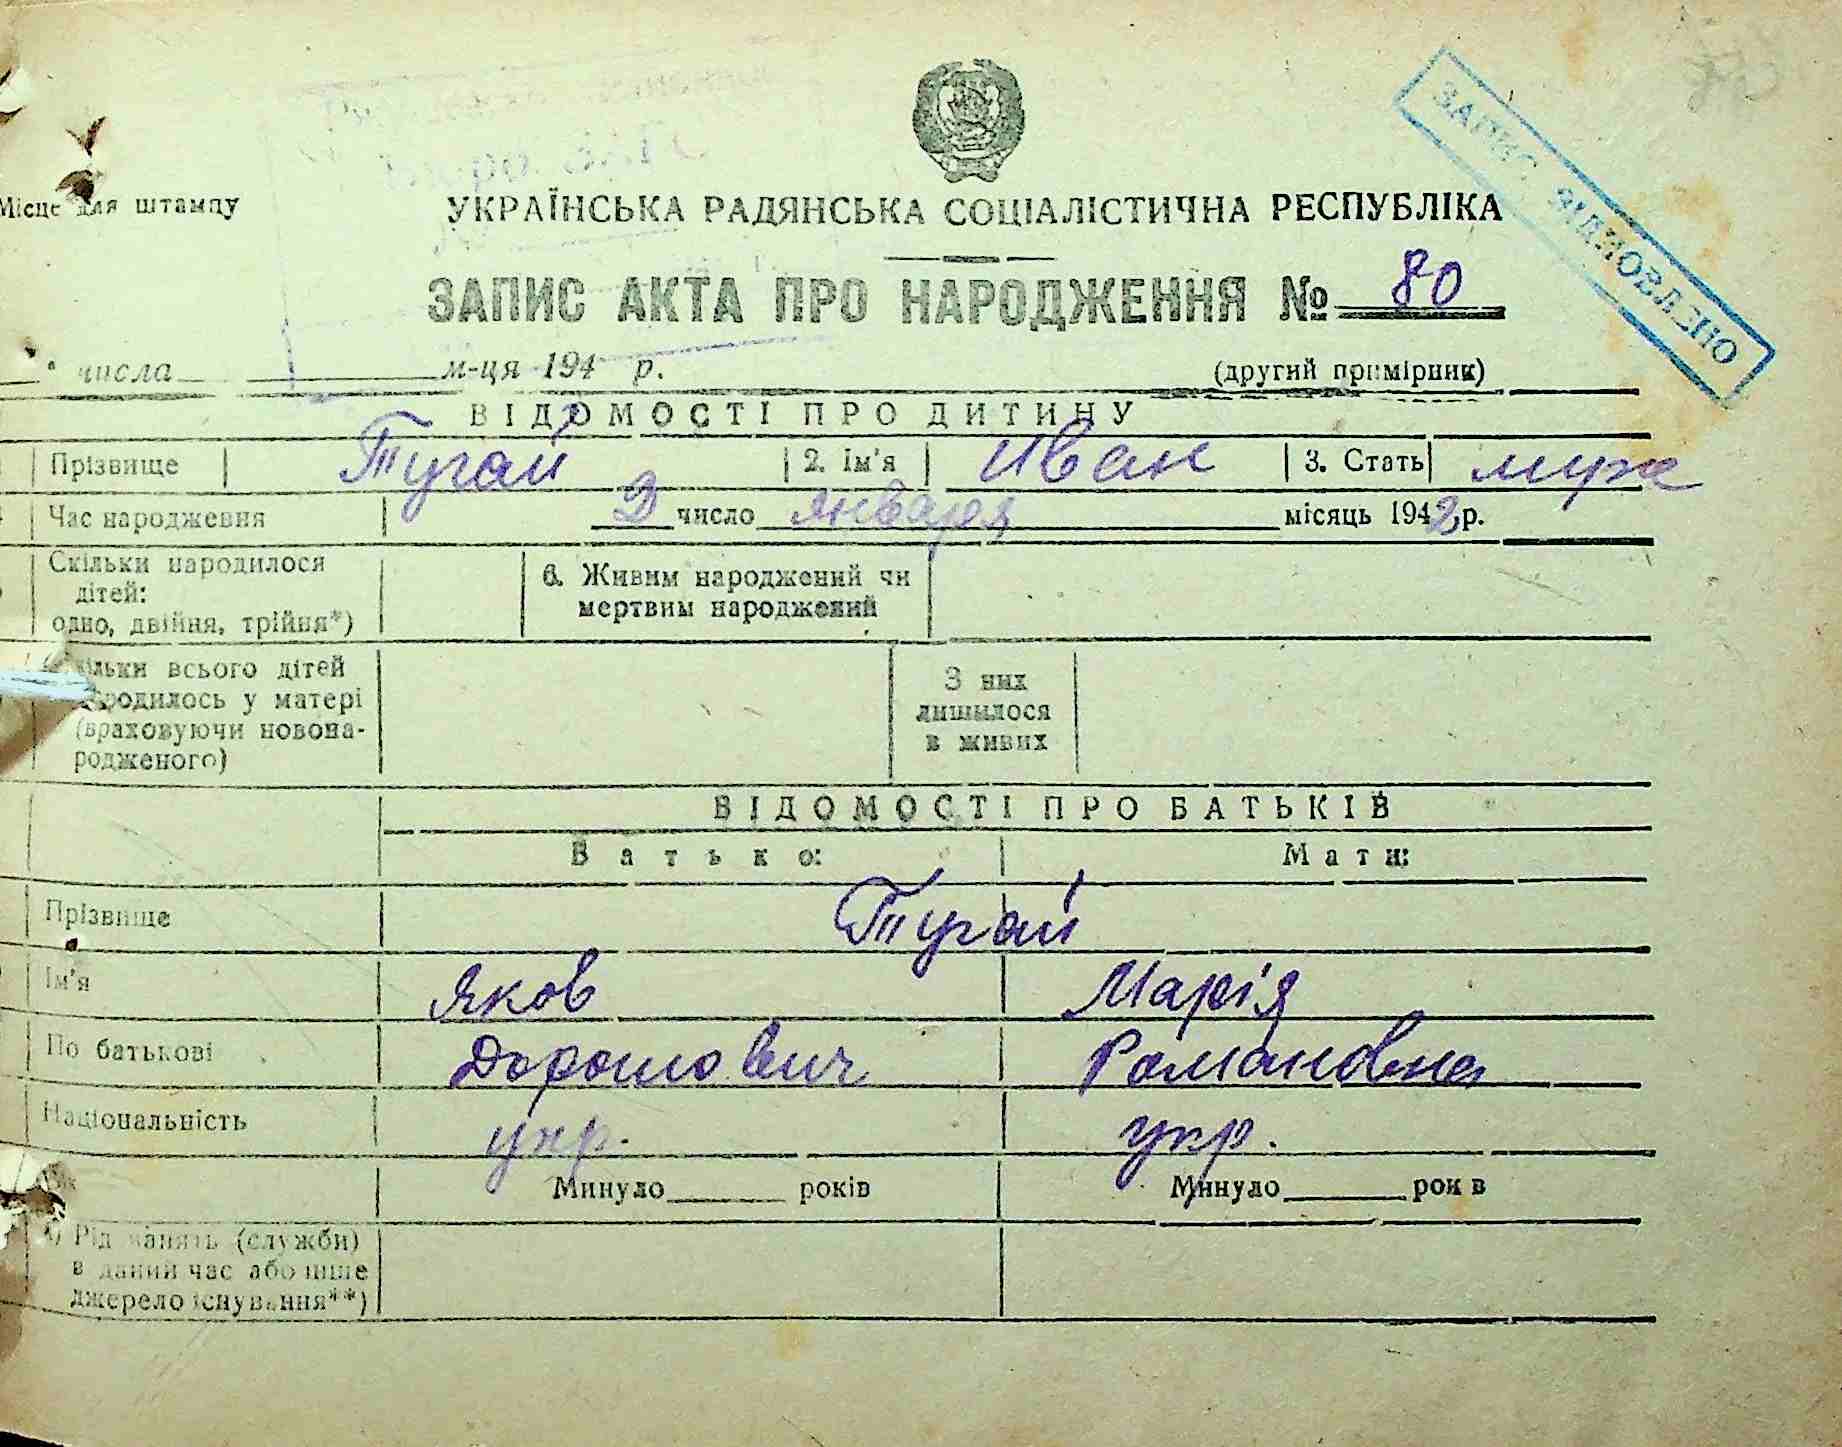 ЗАПИС ВІДНОВЛЕНО
Місце для штампу
УКРАЇНСЬКА РАДЯНСЬКА СОЦІАЛІСТИЧНА РЕСПУБЛІКА
ЗАПИС АКТА ПРО НАРОДЖЕННЯ № 80
числа м-ця 194 р. (другий примірник)
ВІДОМОСТІ ПРО ДИТИНУ
Прізвище Тугай 2. Ім'я Иван 3. Стать муж
Час народження 2 число января місяць 1942 р.
Скільки народилося дітей: одно, двійня, трійня*) 6. Живим народжений чи мертвим народжений
Скільки всього дітей народилось у матері (враховуючи новонародженого) З них лишилося в живих
ВІДОМОСТІ ПРО БАТЬКІВ
Батько: Мати:
Прізвище Тугай
Ім'я Яков Марія
По батькові Дорошович Романовна
Національність укр. укр.
Вік Минуло років Минуло рок в
Рід занять (служби) в даний час або інше джерело існування**)